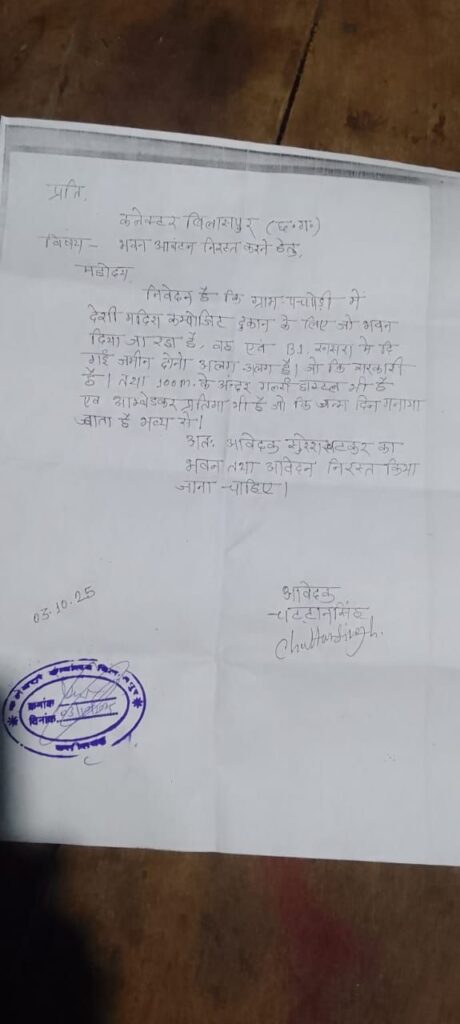 प्रति,
कलेक्टर बिलासपुर (छ.ग.)
विषय - भवन आवंटन निरस्त करने हेतु,
महोदय,
निवेदन है कि ग्राम पचपेड़ी में
देशी मदिरा कम्पोजिट दुकान के लिए जो भवन
दिया जा रहा है, वह एवं B1, खसरा में दि
गई जमीन दोनो अलग अलग है। जो कि सरकारी
है। तथा 100m. के अन्दर गर्ल्स हॉस्टल भी है
एवं आम्बेडकर प्रतिमा भी है जो कि जन्म दिन मनाया
जाता है भव्य से।
अतः आवेदक सुरेश खटकर का
भवन तथा आवेदन निरस्त किया
जाना चाहिए।
03.10.25
आवेदक
चट्टानसिंह
Chattansingh.
क्रमांक
दिनांक